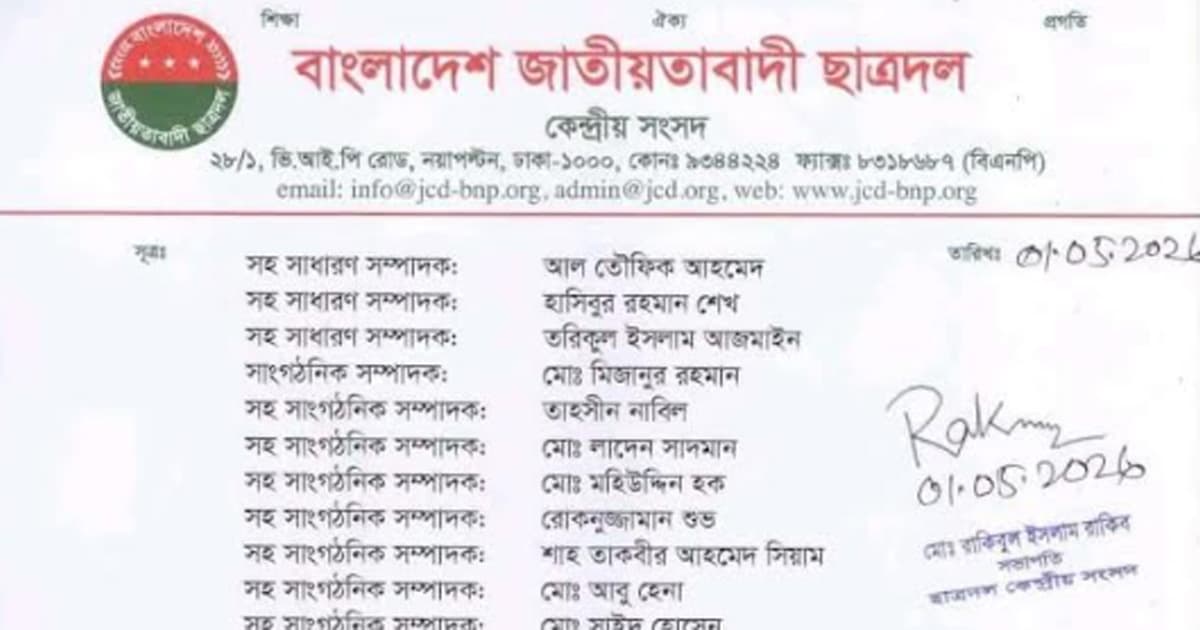 শিক্ষা ঐক্য প্রগতি
বাংলাদেশ জাতীয়তাবাদী ছাত্রদল
জাতীয়তাবাদী ছাত্রদল
কেন্দ্রীয় সংসদ
২৮/১, ভি.আই.পি রোড, নয়াপল্টন, ঢাকা-১০০০, ফোনঃ ৯৩৪৪২২৪ ফ্যাক্সঃ ৮৩১৮৬৮৭ (বিএনপি)
email: info@jcd-bnp.org, admin@jcd.org, web: www.jcd-bnp.org
সূত্রঃ
তারিখঃ 01.05.2026
সহ সাধারণ সম্পাদক: আল তৌফিক আহমেদ
সহ সাধারণ সম্পাদক: হাসিবুর রহমান শেখ
সহ সাধারণ সম্পাদক: তরিকুল ইসলাম আজমাইন
সাংগঠনিক সম্পাদক: মোঃ মিজানুর রহমান
সহ সাংগঠনিক সম্পাদক: তাহসীন নাবিল
সহ সাংগঠনিক সম্পাদক: মোঃ লাদেন সাদমান
সহ সাংগঠনিক সম্পাদক: মোঃ মহিউদ্দিন হক
সহ সাংগঠনিক সম্পাদক: রোকনুজ্জামান শুভ
সহ সাংগঠনিক সম্পাদক: শাহ তাকবীর আহমেদ সিয়াম
সহ সাংগঠনিক সম্পাদক: মোঃ আবু হেনা
সহ সাংগঠনিক সম্পাদক: মোঃ সাইদ হোসেন
01.05.2026
মোঃ রাকিবুল ইসলাম রাকিব
সভাপতি
ছাত্রদল কেন্দ্রীয় সংসদ